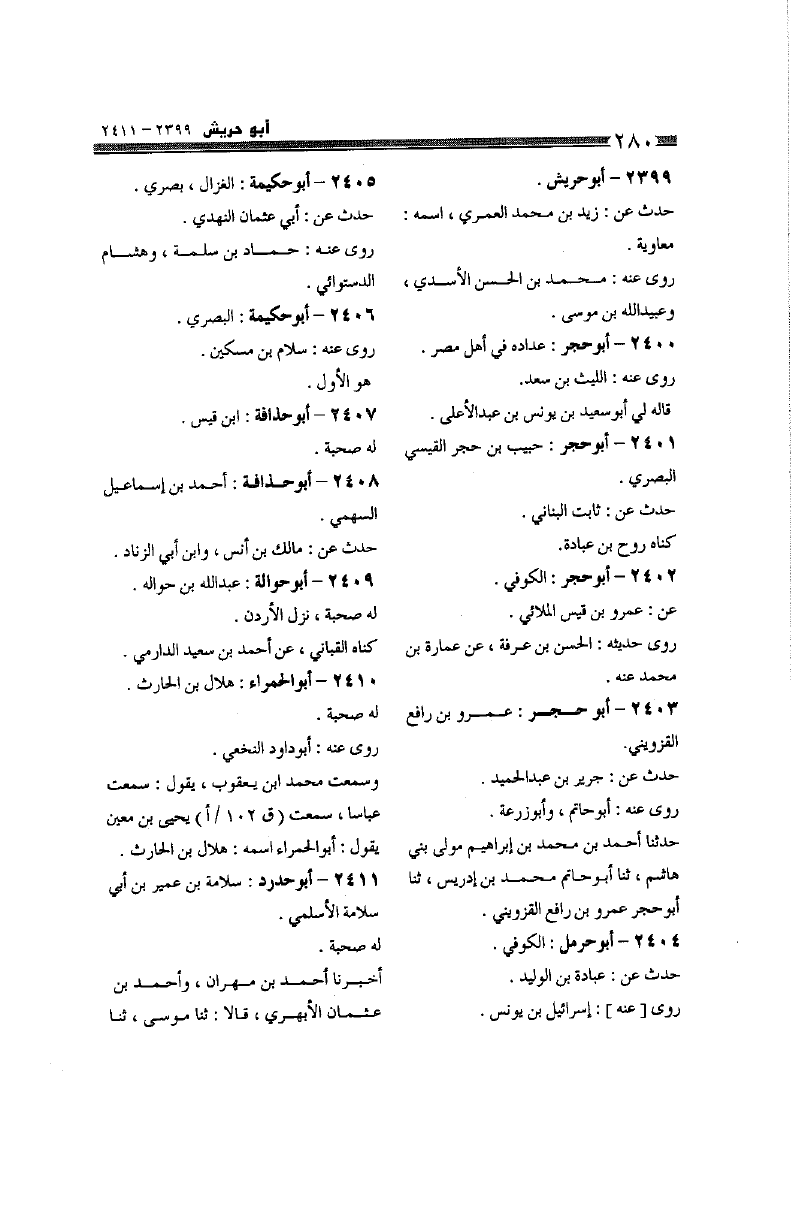 أبو حريش ٢٣٩٩ - ٢٤١١
٢٨٠
٢٣٩٩ - أبوحريش .
حدث عن : زيد بن محمد العمري ، اسمه :
معاوية .
روى عنه : محمد بن الحسن الأسدي ،
وعبيدالله بن موسى .
٢٤٠٠ - أبوحجر : عداده في أهل مصر .
روى عنه : الليث بن سعد.
قاله لي أبوسعيد بن يونس بن عبدالأعلى .
٢٤٠١ - أبوحجر : حبيب بن حجر القيسي
البصري .
حدث عن : ثابت البناني .
كناه روح بن عبادة.
٢٤٠٢ - أبوحجر : الكوفي .
عن : عمرو بن قيس الملائي .
روى حديثه : الحسن بن عرفة ، عن عمارة بن
محمد عنه .
٢٤٠٣ - أبو حجر : عمرو بن رافع
القزويني.
حدث عن : جرير بن عبدالحميد .
روى عنه : أبوحاتم ، وأبوزرعة .
حدثنا أحمد بن محمد بن إبراهيم مولى بني
هاشم ، ثنا أبوحاتم محمد بن إدريس ، ثنا
أبوحجر عمرو بن رافع القزويني .
٢٤٠٤ - أبوحرمل : الكوفي .
حدث عن : عبادة بن الوليد .
روى [ عنه ] : إسرائيل بن يونس .
٢٤٠٥ - أبوحكيمة : الغزال ، بصري .
حدث عن : أبي عثمان النهدي .
روى عنه : حماد بن سلمة ، وهشام
الدستوائي .
٢٤٠٦ - أبوحكيمة : البصري .
روى عنه : سلام بن مسكين .
هو الأول .
٢٤٠٧ - أبوحذافة : ابن قيس .
له صحبة .
٢٤٠٨ - أبوحذافة : أحمد بن إسماعيل
السهمي .
حدث عن : مالك بن أنس ، وابن أبي الزناد .
٢٤٠٩ - أبوحوالة : عبدالله بن حواله .
له صحبة ، نزل الأردن .
كناه القباني ، عن أحمد بن سعيد الدارمي .
٢٤١٠ - أبوالحمراء : هلال بن الحارث .
له صحبة .
روى عنه : أبوداود النخعي .
وسمعت محمد ابن يعقوب ، يقول : سمعت
عباسا ، سمعت (ق ١٠٢ / أ) يحيى بن معين
يقول : أبوالحمراء اسمه : هلال بن الحارث .
٢٤١١ - أبوحدرد : سلامة بن عمير بن أبي
سلامة الأسلمي .
له صحبة .
أخبرنا أحمد بن مهران ، وأحمد بن
عثمان الأبهري ، قالا : ثنا موسى ، ثنا